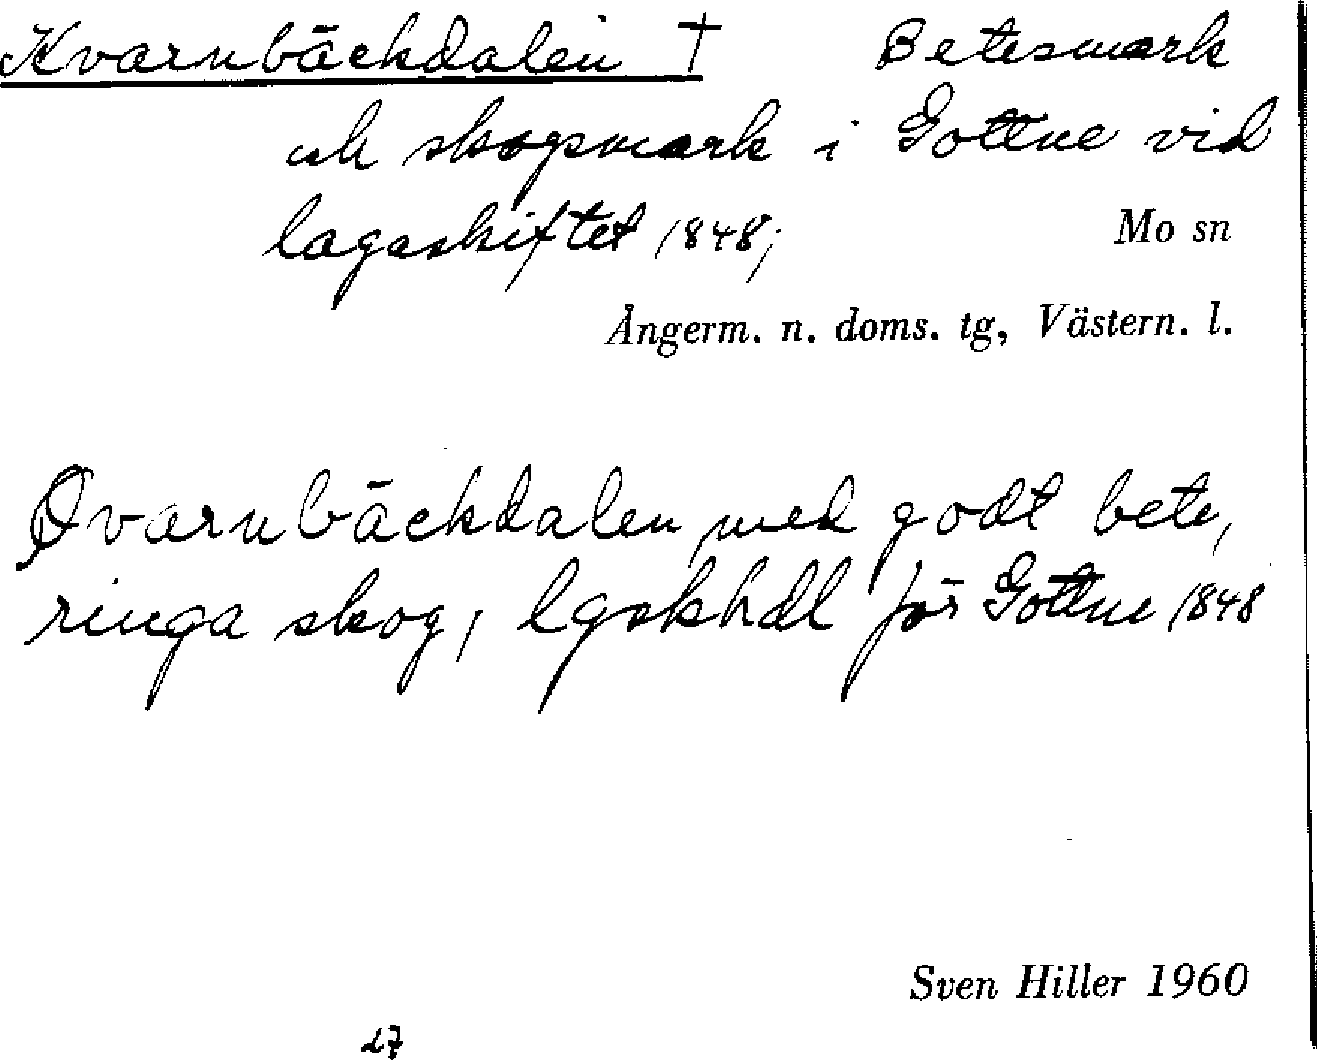 Kvarnbäckdalen † Betesmark
och skogsmark i Gottne vid
lagaskiftet 1848;
Mo sn
Ångerm. n. doms. tg, Västern. l.
Qvarnbäckdalen, med godt bete,
ringa skog, lgskhdl för Gottne 1848
Sven Hiller 1960
27